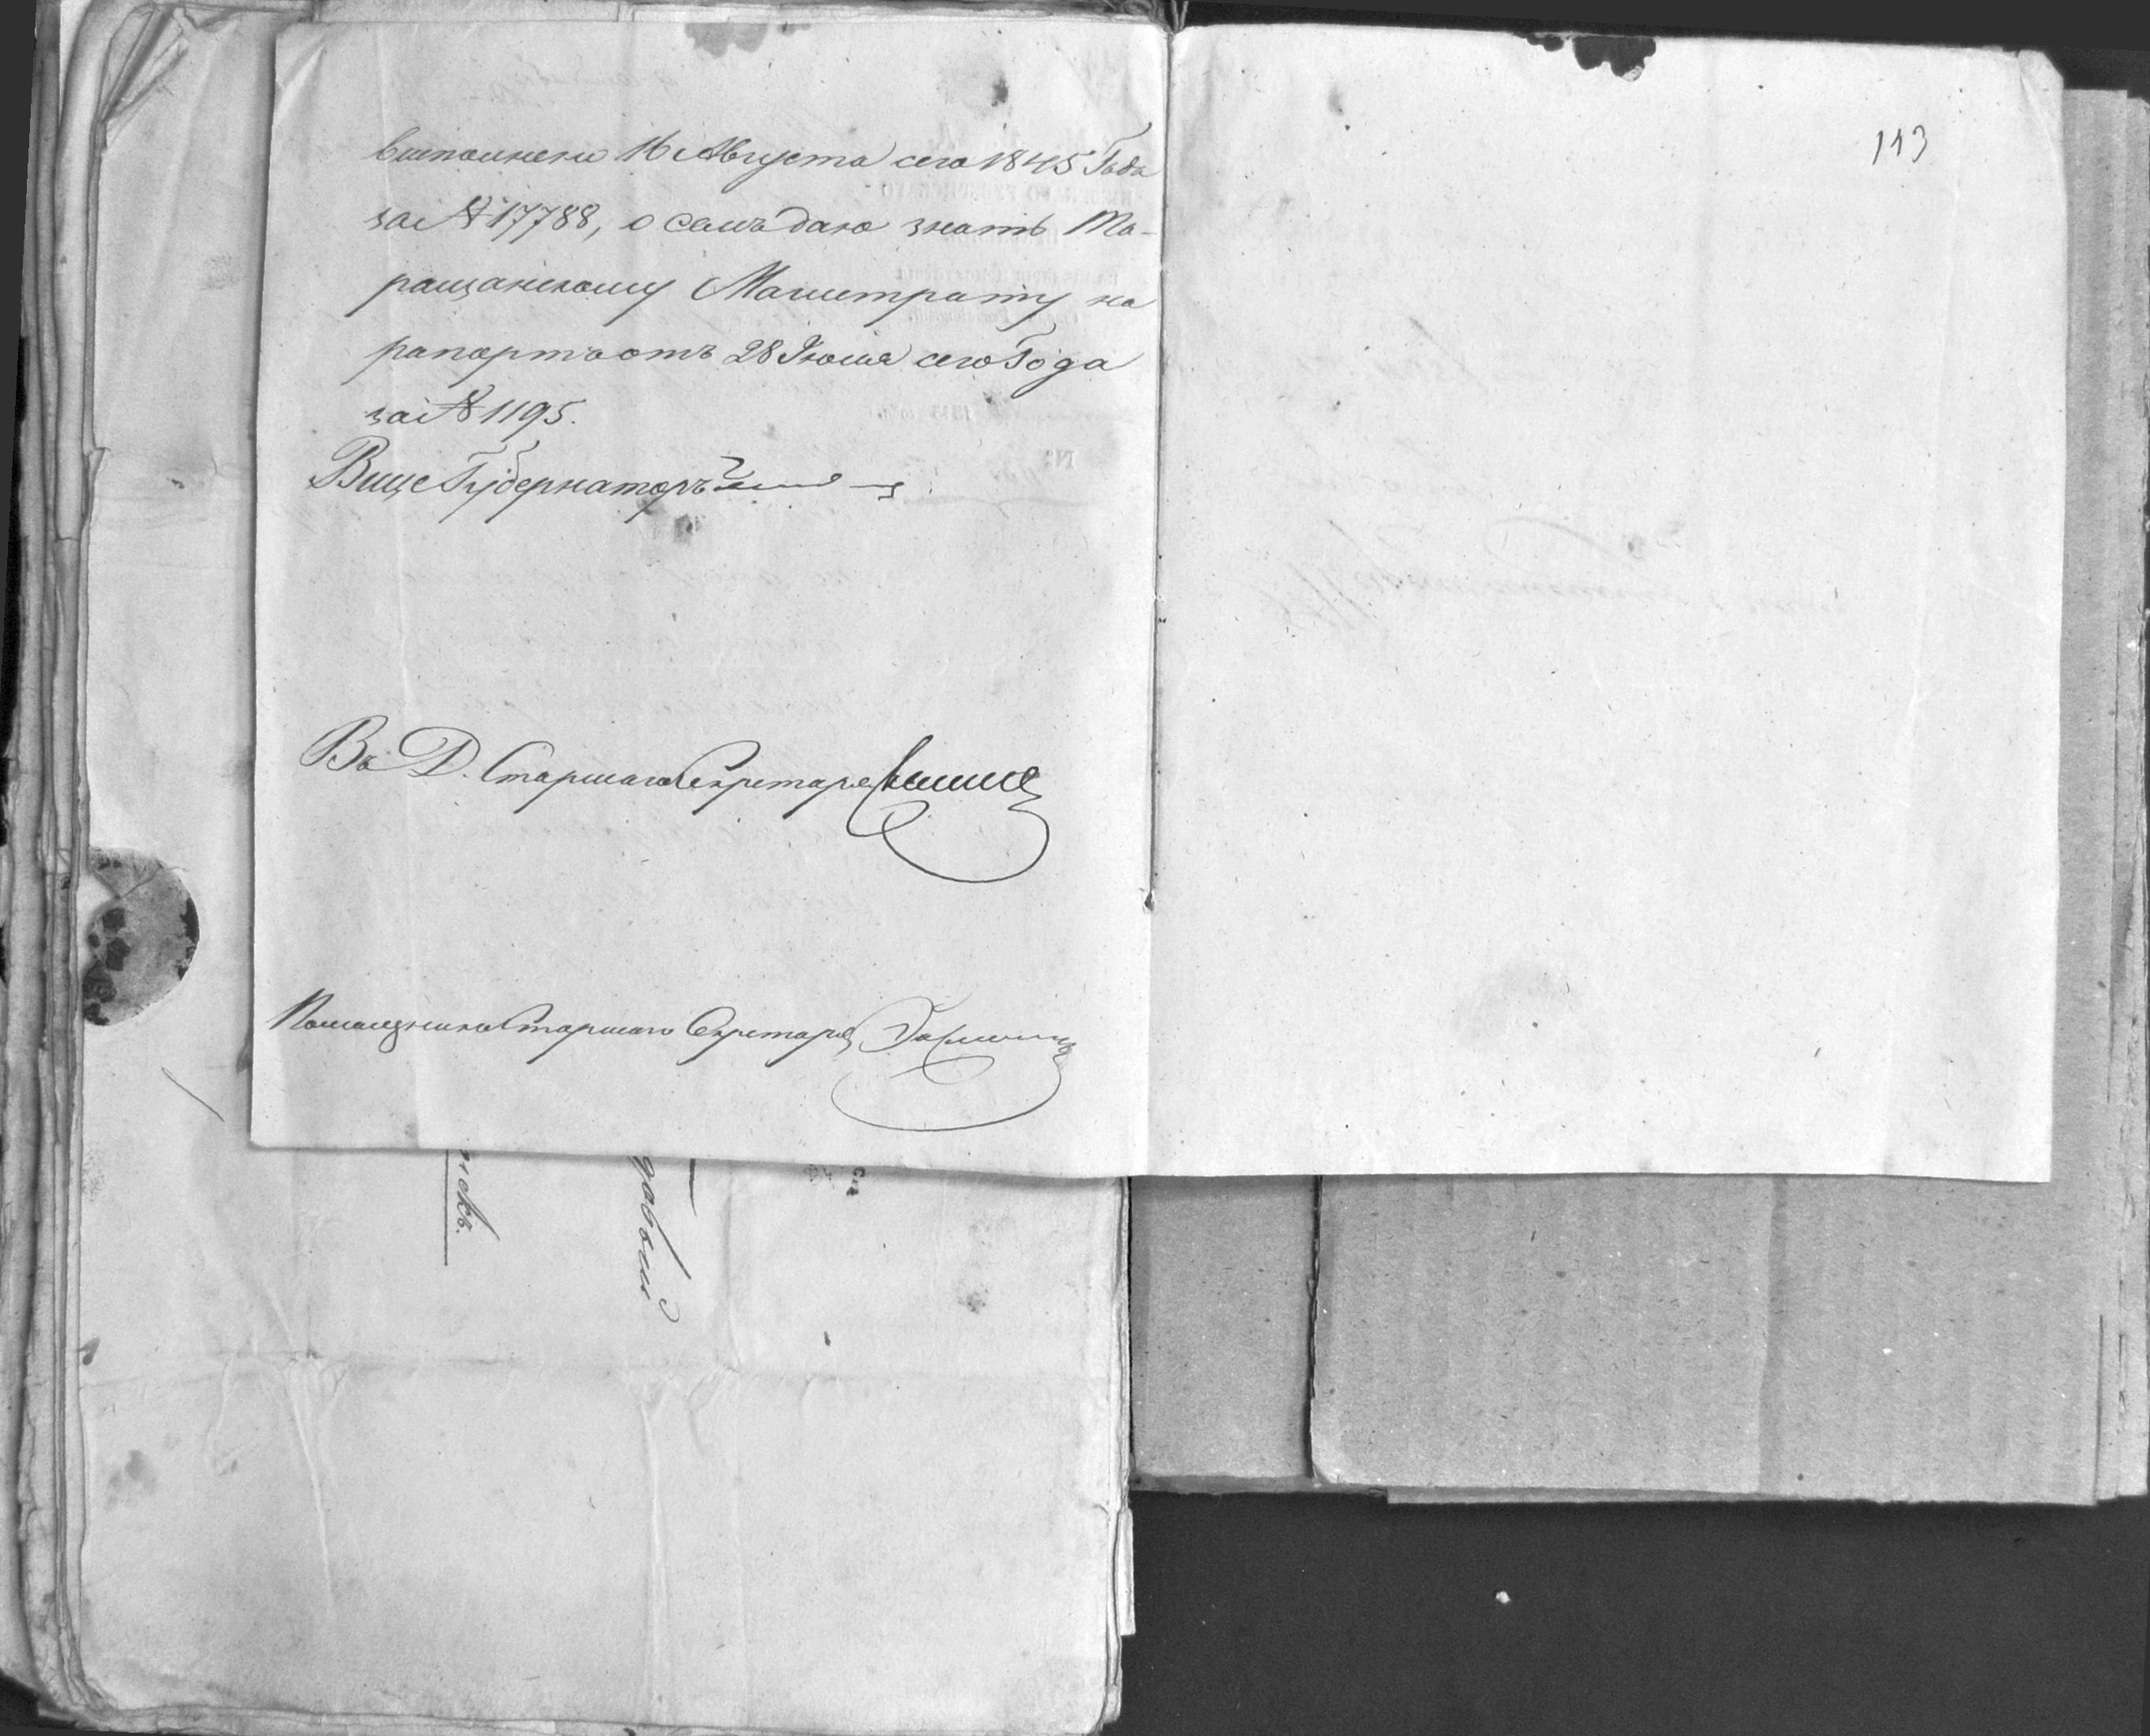 выполнено 16 Августа сего 1845 Года
за № 17788, о семъ даю знать Та-
ращанскому Магистрату на
рапортъ отъ 28 Іюля сего Года
за № 1195.
Вице Губернаторъ
Въ Д. Старшаго Секретаря
Помощникъ Старшаго Секретаря
113